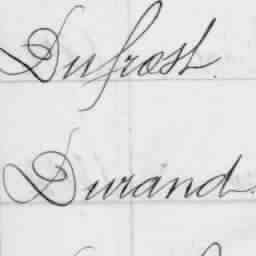 Dufrost.
Durand.